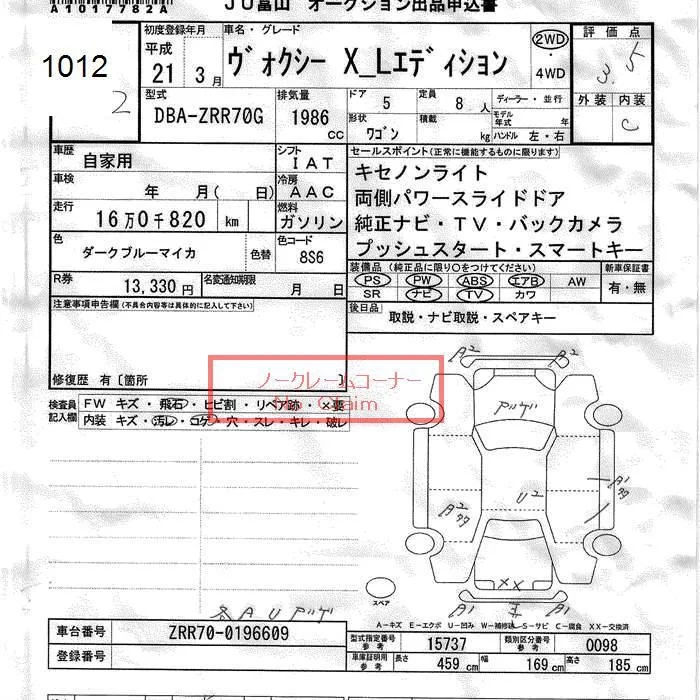 A1017782A
JU富山 オークション出品申込書
1012
2
初度登録年月
平成
21 3月
車名・グレード
ヴォクシー X_Lエディション
2WD
・
4WD
評価点
3.5
外装 内装
C
型式
DBA-ZRR70G
排気量
1986
cc
ドア 5
定員 8 人
形状 ワゴン
積載 kg
ディーラー・並行
モデル年式 年
ハンドル 左・右
車歴 自家用
シフト IAT
車検 年 月( 日)
冷房 AAC
走行 16万0千820 km
燃料 ガソリン
色 ダークブルーマイカ 色替
色コード 8S6
R券 13,330円
名変通知期限 月 日
セールスポイント(正常に機能するものに限ります)
キセノンライト
両側パワースライドドア
純正ナビ・TV・バックカメラ
プッシュスタート・スマートキー
装備品 (純正品に限り○をつけてください)
新車保証書
PS PW ABS エアB AW
SR ナビ TV カワ
有・無
後日品 取説・ナビ取説・スペアキー
注意事項申告欄(不具合内容等は具体的に記入して下さい)
修復歴 有〔箇所 〕
ノークレームコーナー
No Claim
検査員記入欄
FW キズ・飛石・ヒビ割・リペア跡・×要
内装 キズ・汚レ・コゲ・穴・スレ・キレ・破レ
A2 A2
アリゲ
A1
U2
A2
XX
A1 A1
スペア
各AUアリゲ
A-キズ E-エクボ U-凹み W-補修跡 S-サビ C-腐食 XX-交換済
車台番号 ZRR70-0196609
登録番号
型式指定番号 参考 15737
類別区分番号 参考 0098
車庫証明用 参考 長さ 459 cm 幅 169 cm 高さ 185 cm